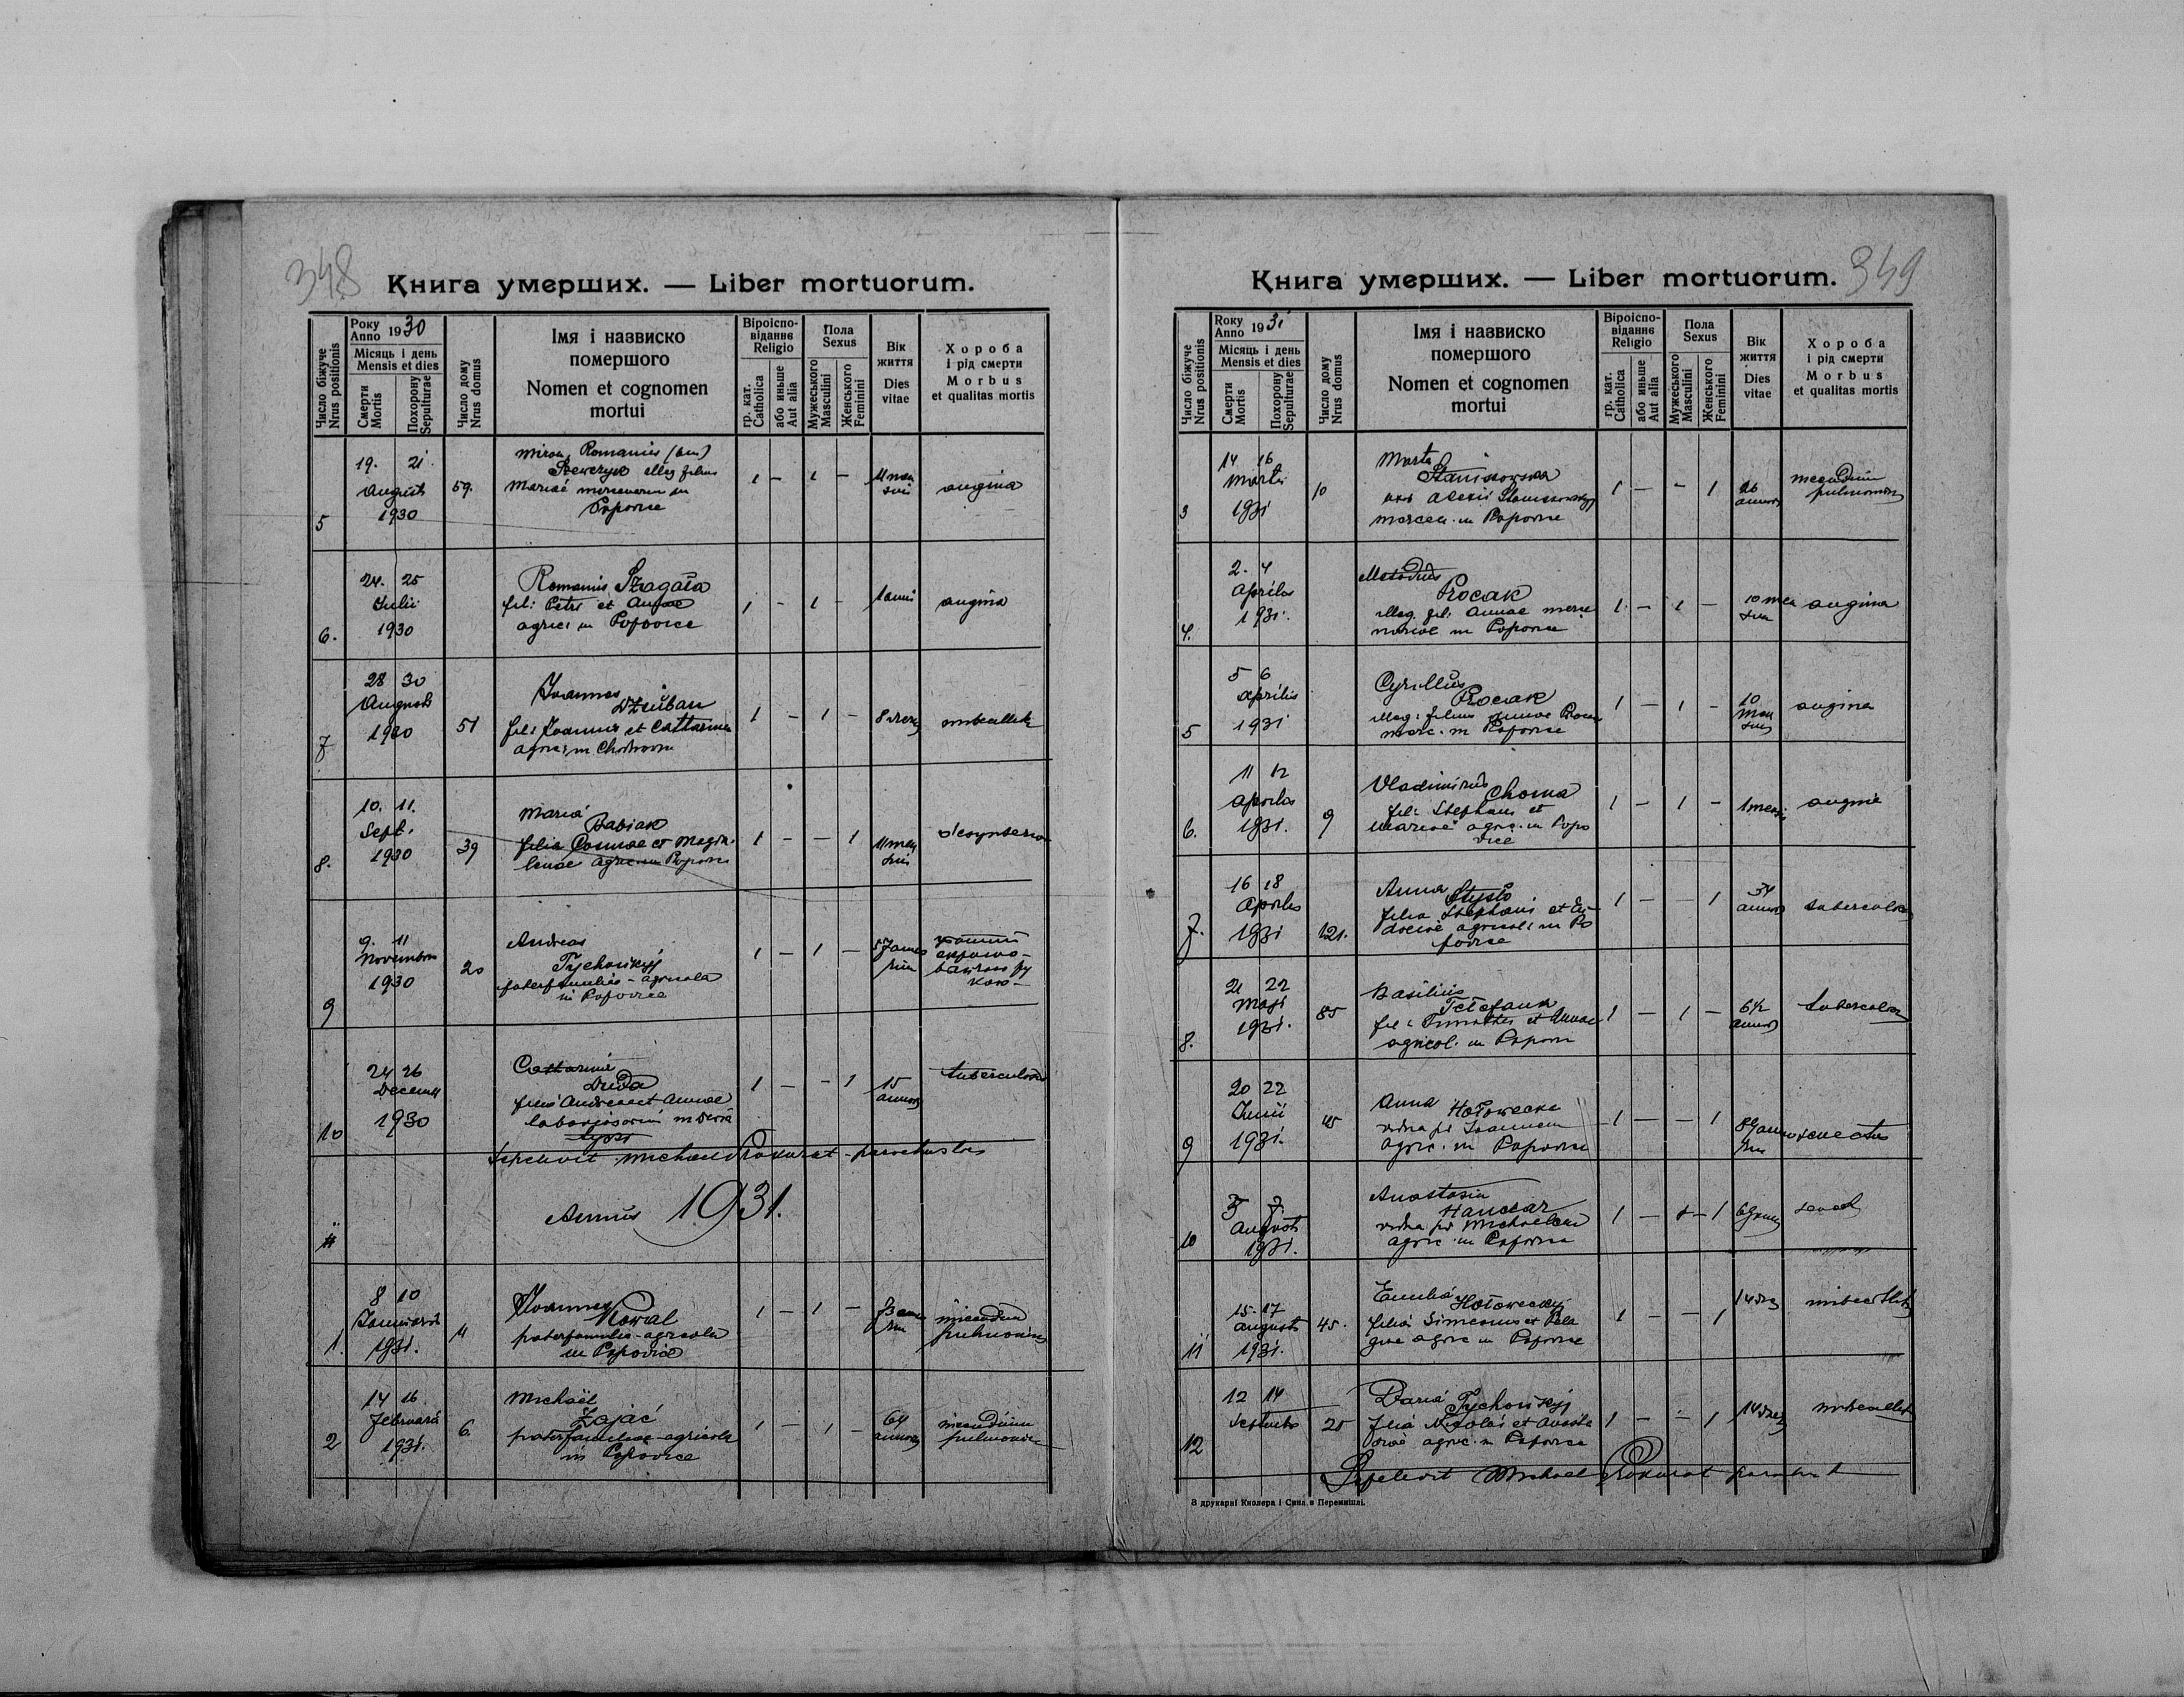 348
Книга умерших. — Liber mortuorum.
Число біжуче
Nrus positionis
Року
Anno 1930
Місяць і день
Mensis et dies
Смерти
Mortis
Похорону
Sepulturae
Число дому
Nrus domus
Імя і назвиско
помершого
Nomen et cognomen
mortui
Віроіспо-
віданнє
Religio
гр. кат.
Catholica
або иньше
Aut alia
Пола
Sexus
Мужеського
Masculini
Женського
Feminini
Вік
життя
Dies
vitae
Хороба
і рід смерти
Morbus
et qualitas mortis
5
19. 21.
Augusti
1930
59.
Miron, Romanus
Szewczyk illeg filius
Mariae
Popovice
1 — 1 —
11 men
sium
angina
6.
24. 25
Julii
1930
Romanus Szagała
fil: Petri et Annae
agric: in Popovice
1 — 1 —
1 anni
angina
7
28 30
Augusti
1930
51
Joannes
Dziuban
fil: Joannis et Catharinae
agric: in
1 — 1 —
8
8.
10. 11.
Sept.
1930
39
Maria
Babiak
filia Cosmae et Magda-
lenae agric in Popovice
1 — — 1
11 men
sium
9
9. 11
Novembris
1930
20
Andreas
Tychowskyj
paterfamilias - agricola
in Popovice
1 — 1 —
57 anno
rum
10
24 26
Decemb
1930
Catharina
Duda
filia Andreae et Annae
1 — — 1
15
annor
tuberculosis
Sepelivit Michael Prokurat - parochus loci
Annus 1931.
1.
8 10
Januarii
1931.
11
Joannes
Kowal
paterfamilias - agricola
in Popovice
1 — 1 —
73 anno
rum
pulmonum
2
14 16
Februarii
1931.
6
Michaël
Zając
paterfamilias - agricola
in Popovice
1 — 1 —
64
annor
pulmonum
349
Книга умерших. — Liber mortuorum.
Число біжуче
Nrus positionis
Року
Anno 1931
Місяць і день
Mensis et dies
Смерти
Mortis
Похорону
Sepulturae
Число дому
Nrus domus
Імя і назвиско
помершого
Nomen et cognomen
mortui
Віроіспо-
віданнє
Religio
гр. кат.
Catholica
або иньше
Aut alia
Пола
Sexus
Мужеського
Masculini
Женського
Feminini
Вік
життя
Dies
vitae
Хороба
і рід смерти
Morbus
et qualitas mortis
3
14 16
Martii
1931
10
Marta
Staniszowska
uxor Alexii
in Popovice
1 — — 1
26
annor
pulmonum
4.
2. 4
Aprilis
1931.
Metodius
Procak
illeg. fil. Annae merce
nariae in Popovice
1 — 1 —
10 men
sium
angina
5
5 6
Aprilis
1931
Cyrillus
Procak
illeg: filius Annae Procak
merc. in Popovice
1 — 1 —
10
men
sium
angina
6.
11 12
Aprilis
1931.
9
Vladimirus
Choma
fil: Stephani et
Mariae agric. in Popo
vice
1 — 1 —
1 mens
angina
7.
16 18
Aprilis
1931
121.
Anna
filia Stephani et Eu-
dociae agricol: in Po
povice
1 — — 1
34
annor
tuberculosis
8.
21 22
Maji
1931.
85
Basilius
Tełefank
fil: Timothei et Annae
agricol. in Popovice
1 — 1 —
6 1/2
annor
tuberculosis
9
20 22
Junii
1931.
45
Anna Hołowecka
vidua per Joannem
agric. in Popovice
1 — — 1
89 anno
rum
senectus
10
5 7
Augusti
1931.
Anastasia
Hanczar
vidua per Michaelem
agric. in Popovice
1 — — 1
69 anno
senect
11
15. 17
Augusti
1931.
45.
Emilia
Hołoweckyj
filia Simeonis et Pela
giae agric in Popovice
1 — — 1
12
12 14
Septembr
20
Daria Tychowskyj
filia Nicolai et Anasta
siae agric. in Popovice
1 — — 1
Sepelivit Michael Prokurat
В друкарні Кнолера і Сина в Перемишлі.